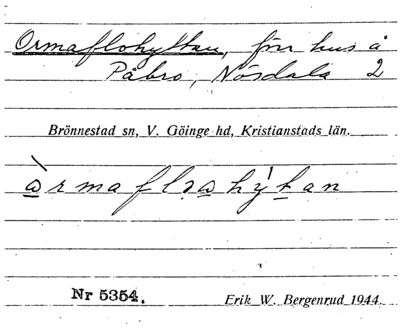 Ormaflohyttan, förr hus å
Påbro, Nösdala 2
Brönnestad sn, V. Göinge hd, Kristianstads län.
Nr 5354.
Erik W. Bergenrud 1944.